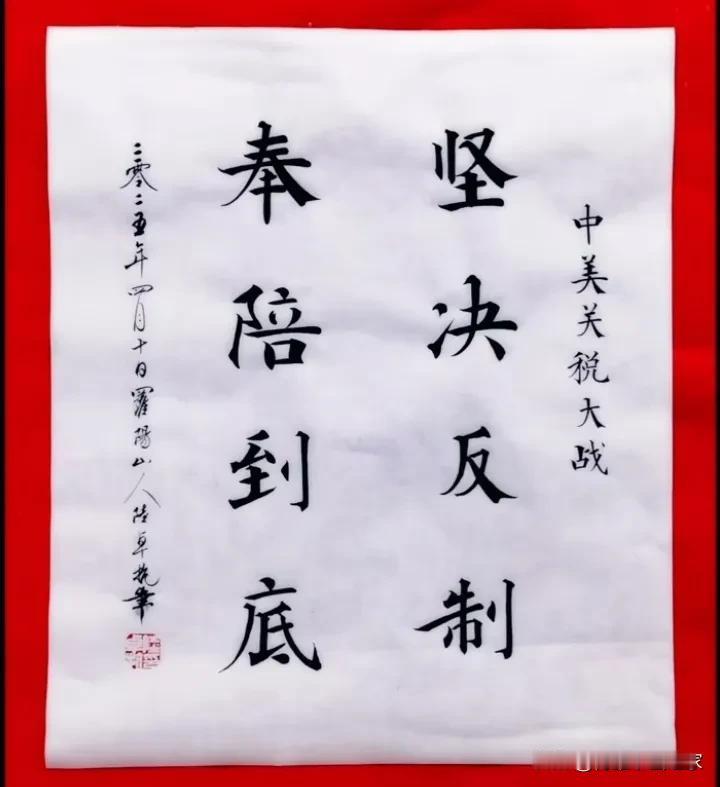 中美关税大战
坚决反制
奉陪到底
二零二五年四月十日羅陽山人陸卓挽筆
家